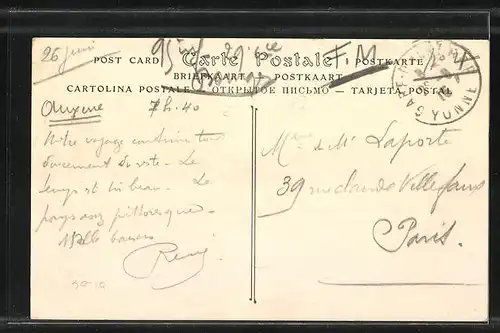 26 juin
POST CARD Carte Postale POSTKARTE
BRIEFKAART POSTKAART
CARTOLINA POSTALE — ОТКРЫТОЕ ПИСЬМО — TARJETA POSTAL
F.M
YONNE
Auxerre 7h.40
Notre voyage continue tout
doucement de suite - Le
temps est très beau - Le
pays assez pittoresque -
baisers
René
Mme & Mr Laporte
39 rue Claude Villefaux
Paris.